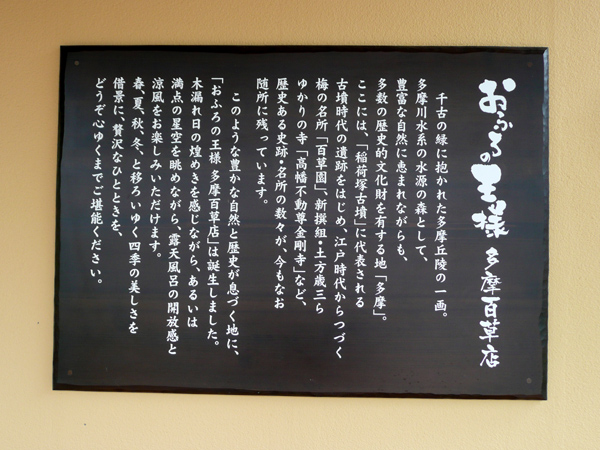 おふろの王様 多摩百草店
千古の緑に抱かれた多摩丘陵の一画。
多摩川水系の水源の森として、
豊富な自然に恵まれながらも、
多数の歴史的文化財を有する地「多摩」。
ここには、「稲荷塚古墳」に代表される
古墳時代の遺跡をはじめ、江戸時代からつづく
梅の名所「百草園」、新撰組・土方歳三ら
ゆかりの寺「高幡不動尊金剛寺」など、
歴史ある史跡・名所の数々が、今もなお
随所に残っています。
このような豊かな自然と歴史が息づく地に、
「おふろの王様 多摩百草店」は誕生しました。
木漏れ日の煌めきを感じながら、あるいは
満点の星空を眺めながら、露天風呂の開放感と
涼風をお楽しみいただけます。
春、夏、秋、冬、と移ろいゆく四季の美しさを
借景に、贅沢なひとときを、
どうぞ心ゆくまでご堪能ください。